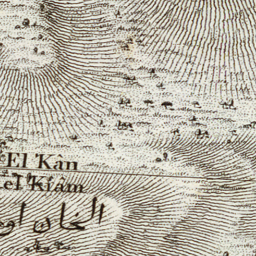 El Kân
el Kiâm
الخان او